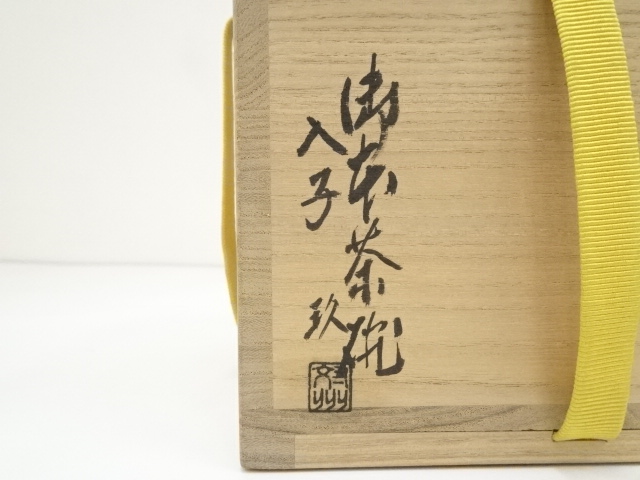 御本茶碗
入子
玖